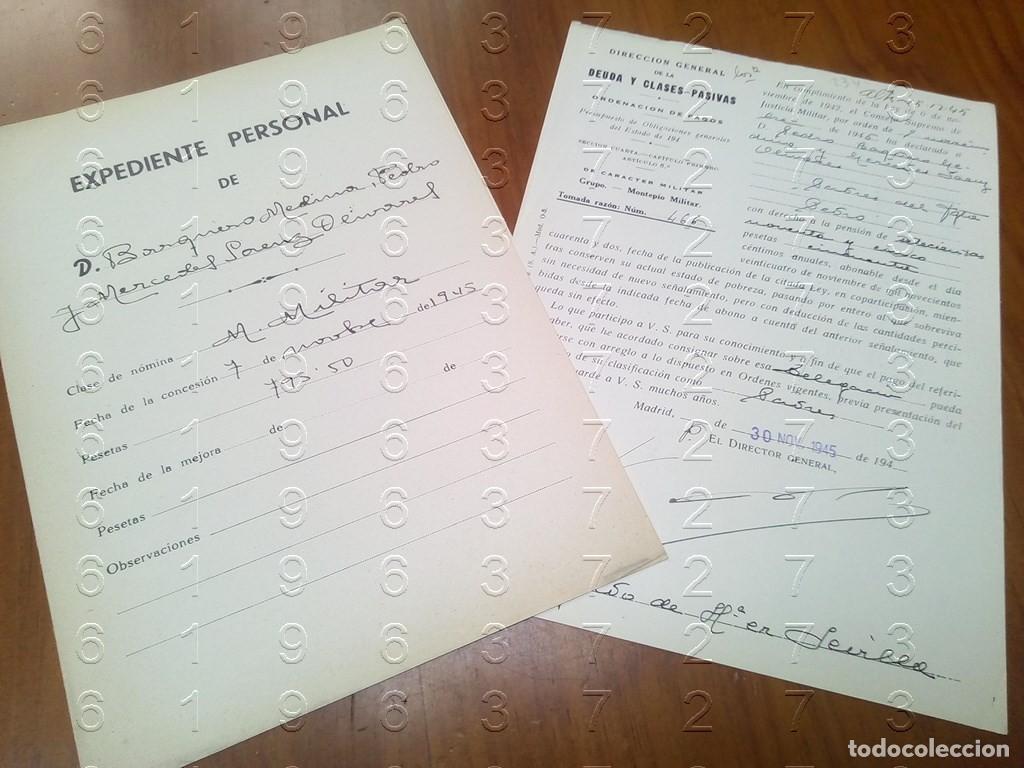 EXPEDIENTE PERSONAL
DE
D. Barquero Medina, Pedro
y Mercedes Saenz Olivares
Clase de nómina M. Militar
Fecha de la concesión 7 de novbre de 1945
Pesetas 795'50
Fecha de la mejora de de
Pesetas
Observaciones
DIRECCION GENERAL
DE LA
DEUDA Y CLASES-PASIVAS
ORDENACION DE PAGOS
Presupuesto de Obligaciones generales
del Estado de 194
SECCION CUARTA.-CAPITULO PRIMERO
ARTÍCULO 8.º
DE CARACTER MILITAR
Grupo. - Montepío Militar.
Tomada razón: Núm. 466
En cumplimiento de la Ley de 6 de no-
viembre de 1942, el Consejo Supremo de
Justicia Militar, por orden de
de 1945 ha declarado a
D. Pedro Barquero Me-
dina y Mercedes Saenz
Olivares
con derecho a la pensión de setecientas
noventa y cinco
pesetas cincuenta
céntimos anuales, abonable desde el día
veinticuatro de noviembre de mil novecientos
cuarenta y dos, fecha de la publicación de la citada Ley, en coparticipación, mien-
tras conserven su actual estado de pobreza, pasando por entero al que sobreviva
sin necesidad de nuevo señalamiento, pero con deducción de las cantidades perci-
bidas desde la indicada fecha de abono a cuenta del anterior señalamiento, que
queda sin efecto.
Lo que participo a V. S. para su conocimiento y a fin de que el pago del referi-
aber, que he acordado consignar sobre esa Delegación pueda
rse con arreglo a lo dispuesto en Ordenes vigentes, previa presentación del
o de su clasificación como
uarde a V. S. muchos años.
Madrid, de 30 NOV. 1945 de 194
P. EL DIRECTOR GENERAL,
de Hª en Sevilla
6 1 9 6 3 7 2 7 3
todocoleccion